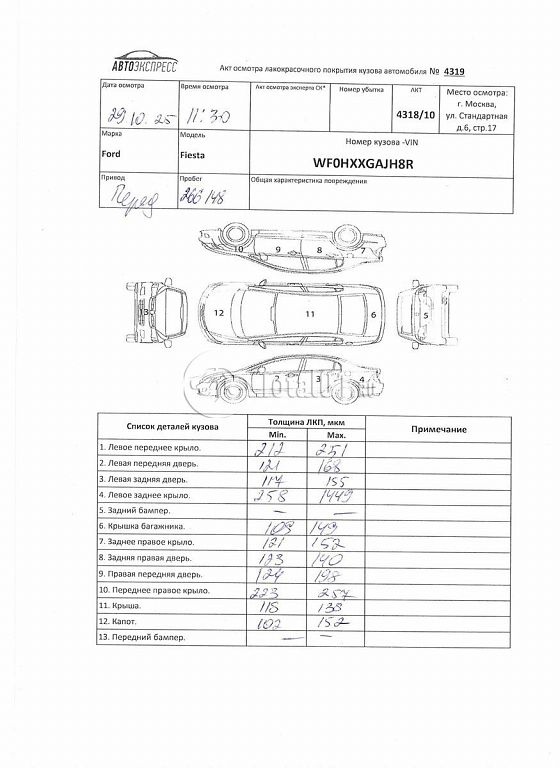 АВТОЭКСПРЕСС
Акт осмотра лакокрасочного покрытия кузова автомобиля № 4319
Дата осмотра Время осмотра Акт осмотра эксперта СК* Номер убытка АКТ Место осмотра:
29.10.25 11:30 4318/10 г. Москва,
ул. Стандартная
д.6, стр.17
Марка Модель Номер кузова -VIN
Ford Fiesta WF0HXXGAJH8R
Привод Пробег Общая характеристика повреждения
Перед 266148
10 9 8 7
13 12 11 6 5
1 2 3 4
TotalCar
Список деталей кузова Толщина ЛКП, мкм Примечание
Min. Max.
1. Левое переднее крыло. 212 251
2. Левая передняя дверь. 121 168
3. Левая задняя дверь. 117 155
4. Левое заднее крыло. 258 1449
5. Задний бампер. — —
6. Крышка багажника. 103 143
7. Заднее правое крыло. 121 152
8. Задняя правая дверь. 123 140
9. Правая передняя дверь. 124 198
10. Переднее правое крыло. 223 257
11. Крыша. 118 138
12. Капот. 102 152
13. Передний бампер. — —